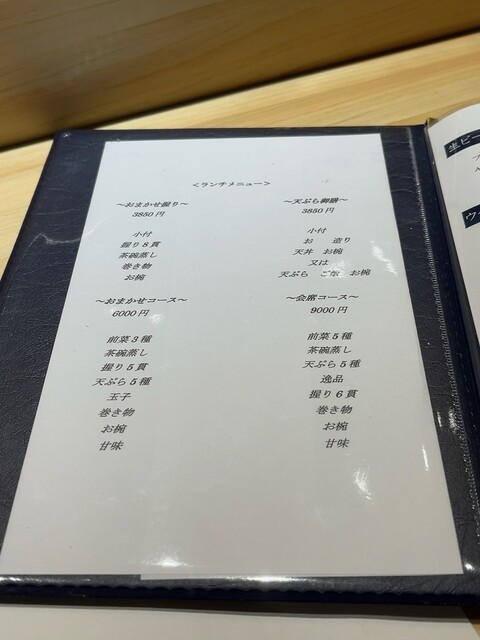 ＜ランチメニュー＞
～おまかせ握り～
3850円
小付
握り8貫
茶碗蒸し
巻き物
お椀
～天ぷら御膳～
3850円
小付
お　造り
天丼　お椀
又は
天ぷら　ご飯　お椀
～おまかせコース～
6000円
前菜3種
茶碗蒸し
握り5貫
天ぷら5種
玉子
巻き物
お椀
甘味
～会席コース～
9000円
前菜5種
茶碗蒸し
天ぷら5種
逸品
握り6貫
巻き物
お椀
甘味
生ビー
ウ